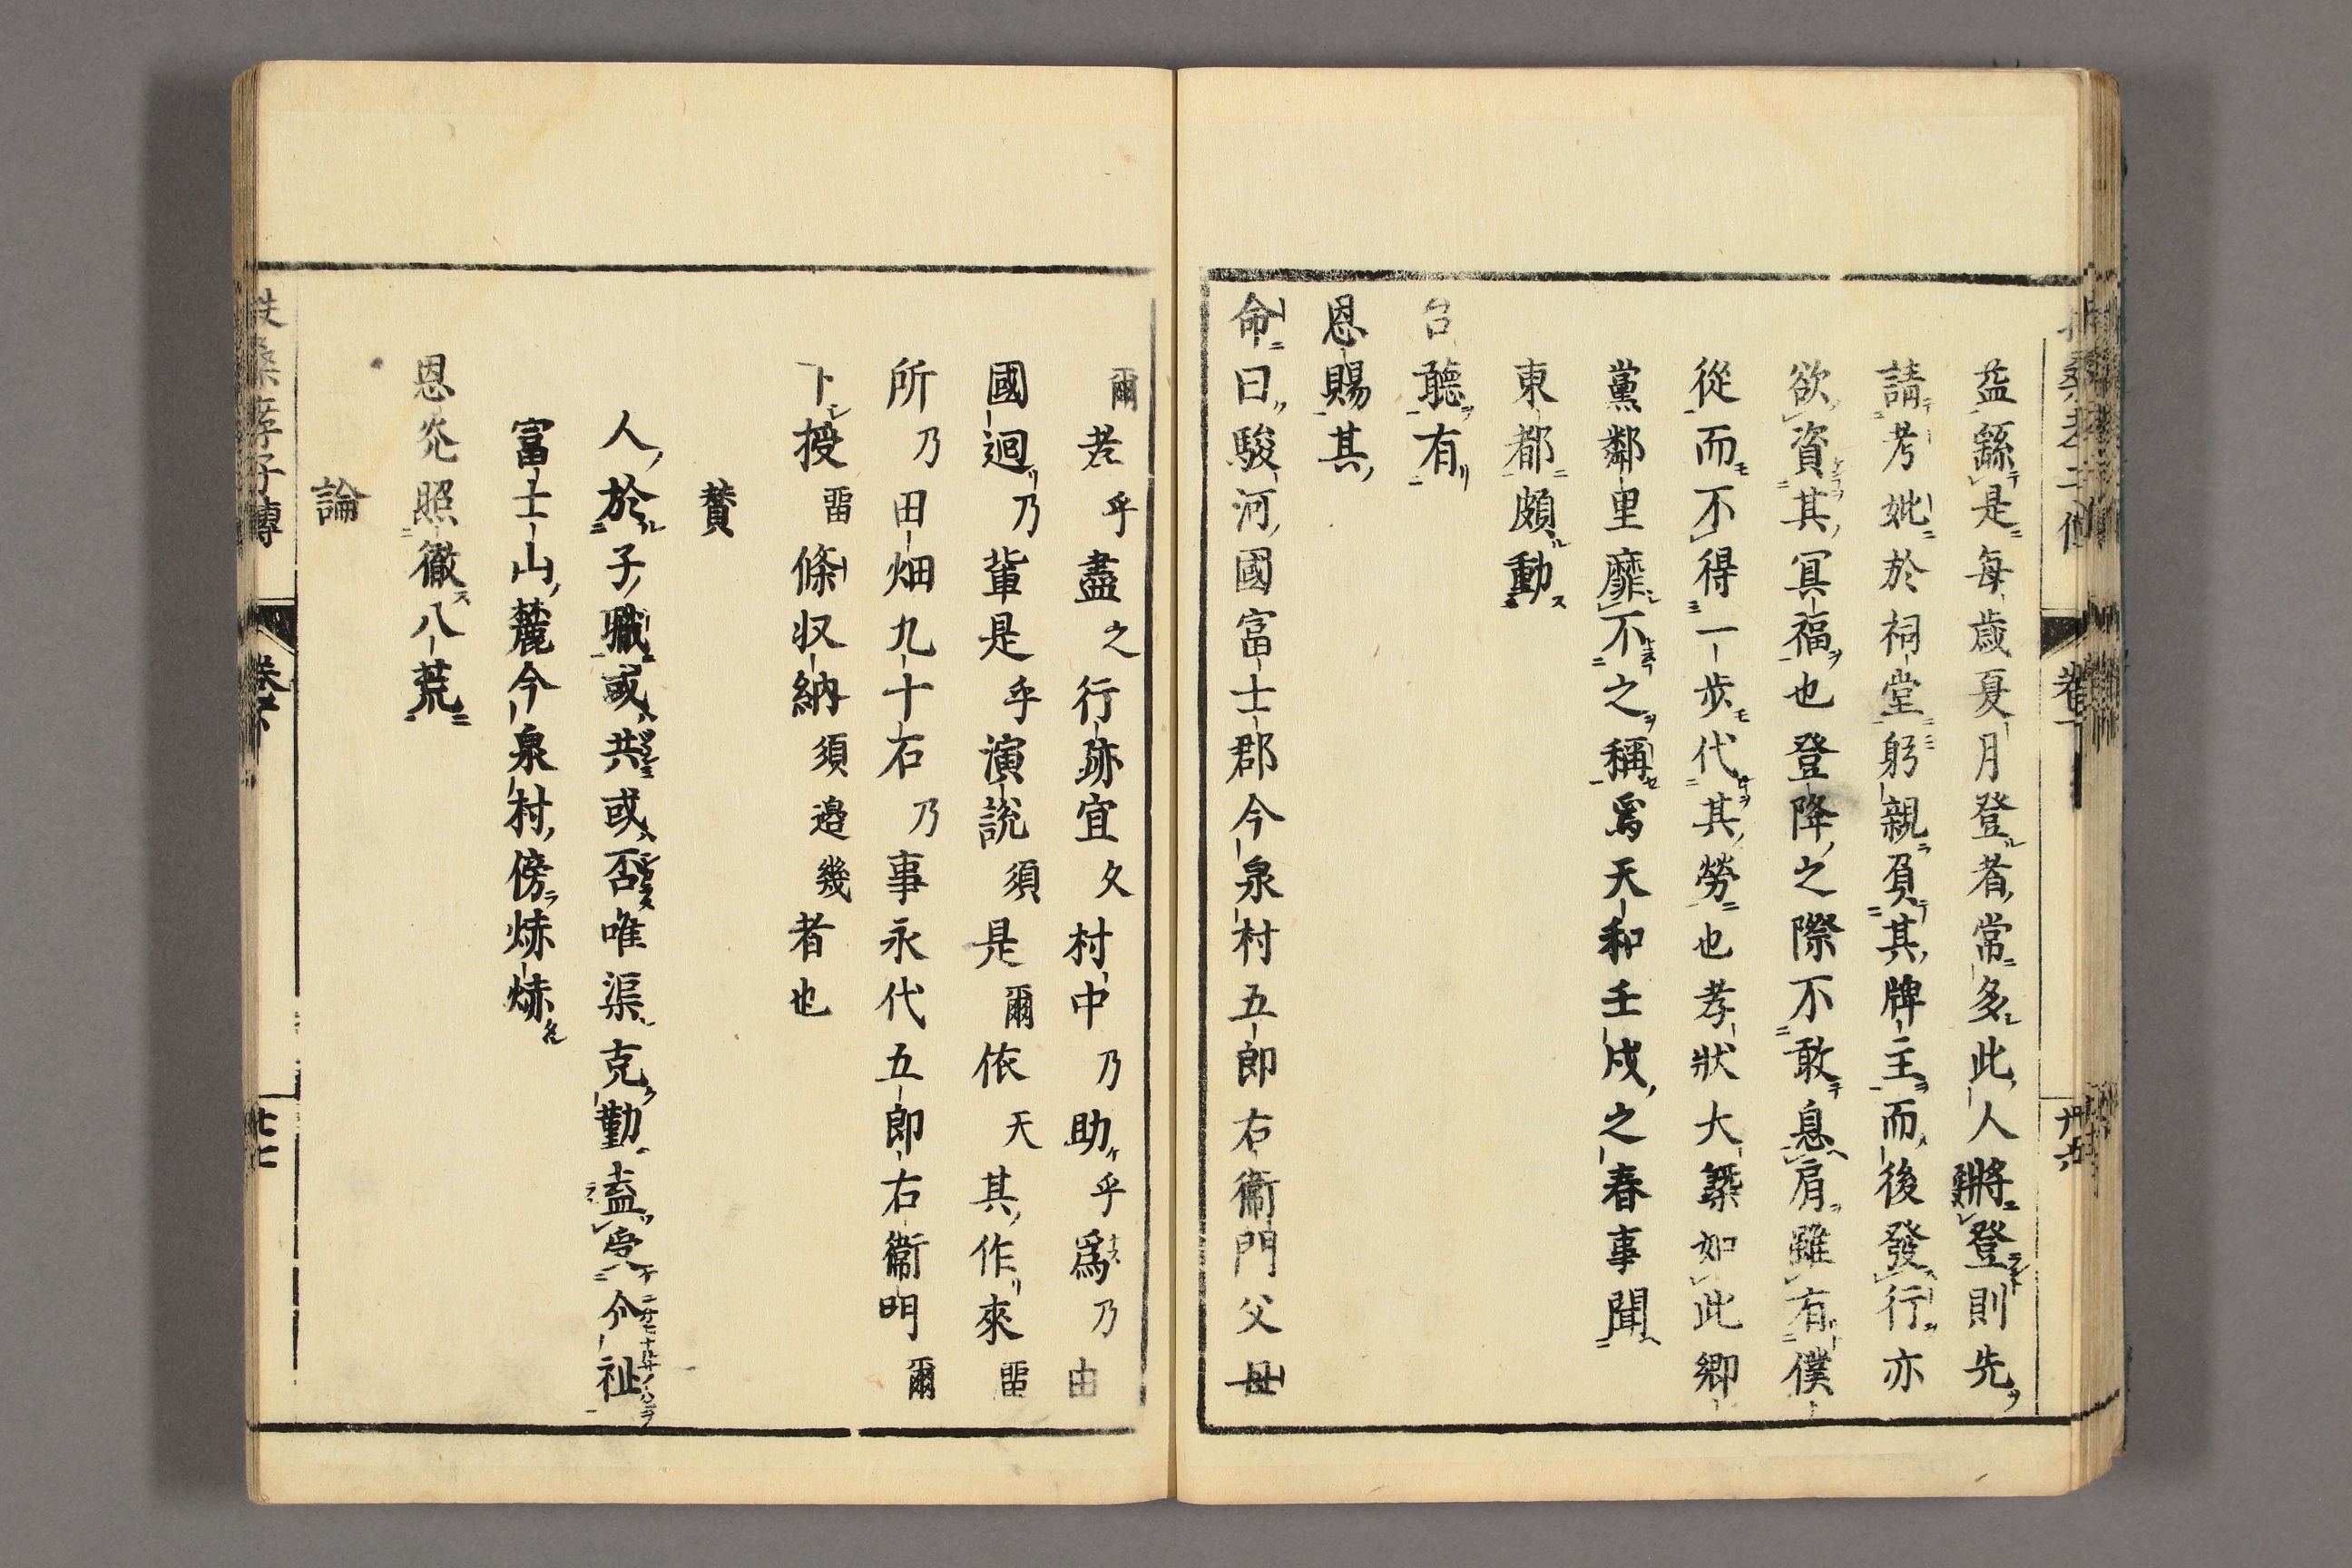 葢繇是每歳夏月登者常多此人將登則先
請考妣於祠堂躬親負其牌主而後發行亦
欲資其冥福也登降之際不敢息肩雖有僕
從而不得一歩代其勞也孝狀大槩如此郷
黨鄰里靡不之稱焉天和壬戌之春事聞
東都頗動
台聽有
恩賜其
命曰駿河國富士郡今泉村五郎右衞門父母
爾孝乎盡之行跡宜久村中乃助乎爲乃由
國迴乃輩是乎演說須是爾依天其作來畱
所乃田畑九十石乃事永代五郎右衞門爾
下授畱條収納須邉幾者也
賛
人於子職或共或否唯渠克勤盍受介祉
富士山麓今泉村傍烋烋
恩炎照徹八荒
論
扶桑孝子傳